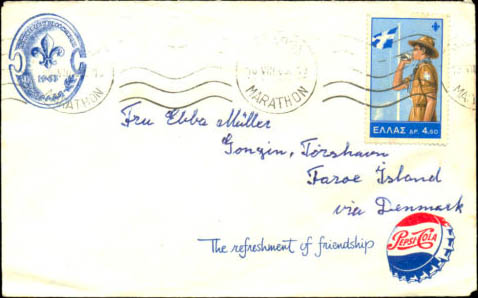 1963
MARATHON
MARATHON
ΕΛΛΑΣ ΔΡ. 4.50
Fru Ebba Müller
Gongin, Tórshavn
Faroe Island
via Denmark
The refreshment of friendship
PEPSI-COLA